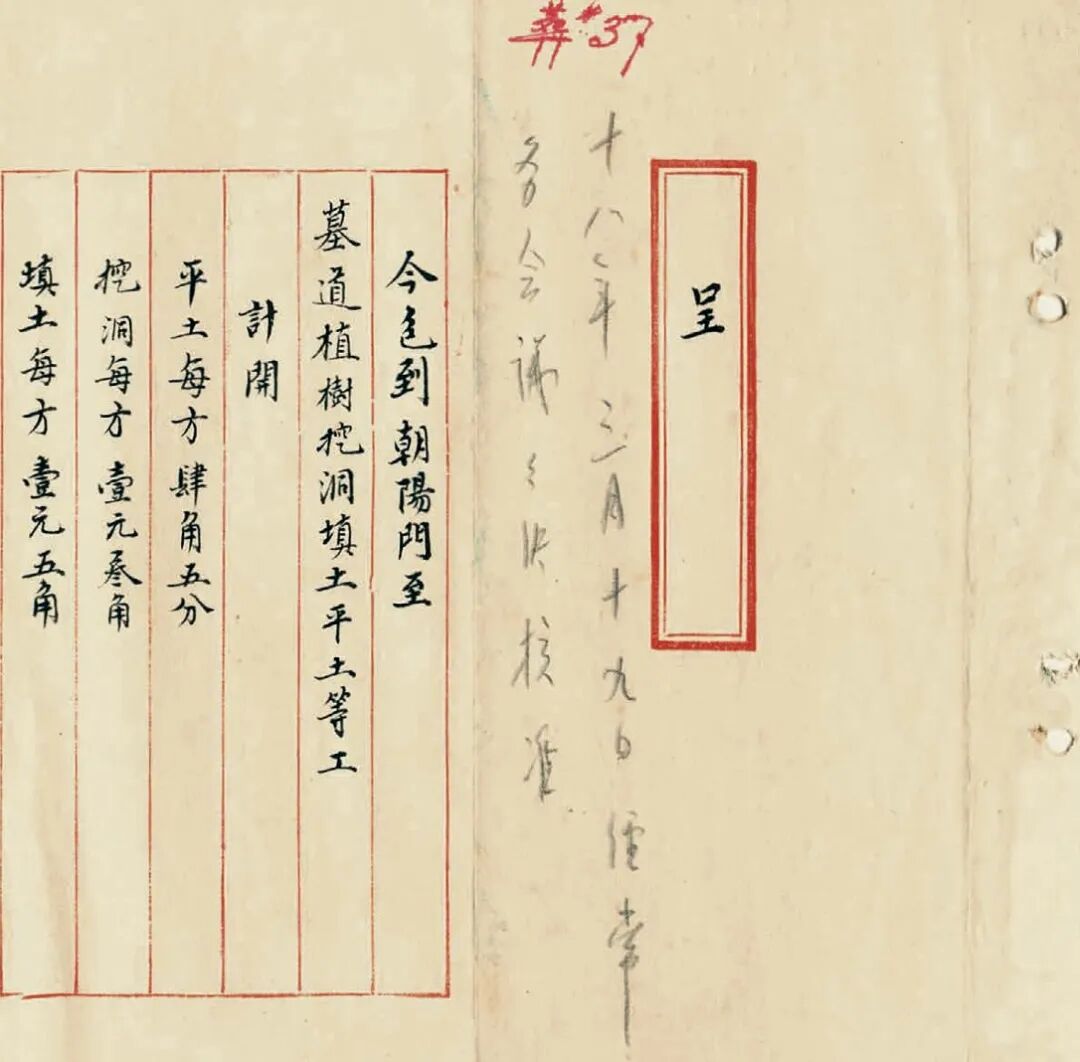 葬#37
呈
十八年三月十九日經常
務会議々決核准
今包到朝陽門至
墓道植樹挖洞填土平土等工
計開
平土每方肆角五分
挖洞每方壹元叁角
填土每方壹元五角